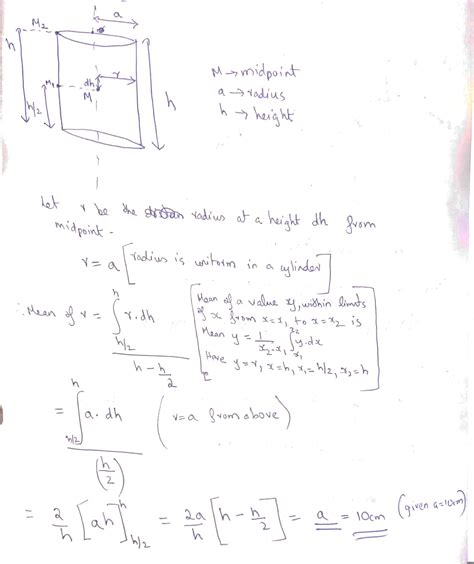 M2 a
h M1 dh r M h/2 h
M → midpoint
a → radius
h → height
Let r be the radius at a height dh from
midpoint.
r = a [radius is uniform in a cylinder]
∴ Mean of r = ∫_{h/2}^{h} r.dh / (h - h/2)
[Mean of a value y, within limits
of x from x = x₁ to x = x₂ is
Mean y = 1/(x₂-x₁) ∫_{x₁}^{x₂} y.dx
Here y=r, x=h, x₁=h/2, x₂=h]
= ∫_{h/2}^{h} a.dh / (h/2) (r=a from above)
= 2/h [ah]_{h/2}^{h} = 2a/h [h - h/2] = a = 10cm (given a=10cm)